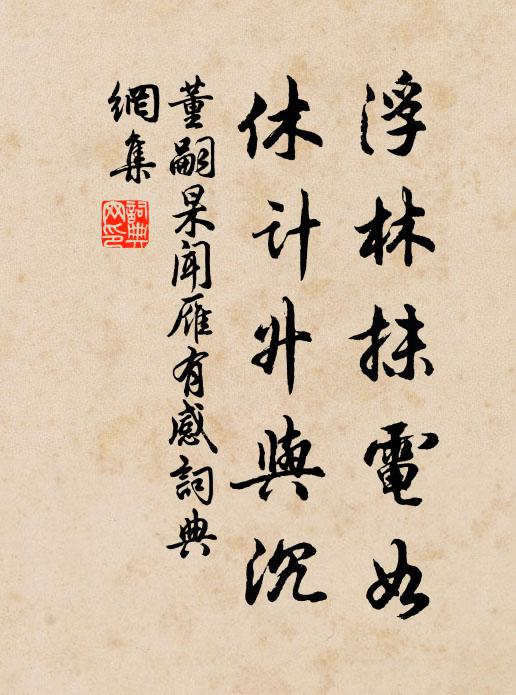 浮林抹電如
休計升與沉
董嗣杲聞雁有感詞典
網集
詞典
网印